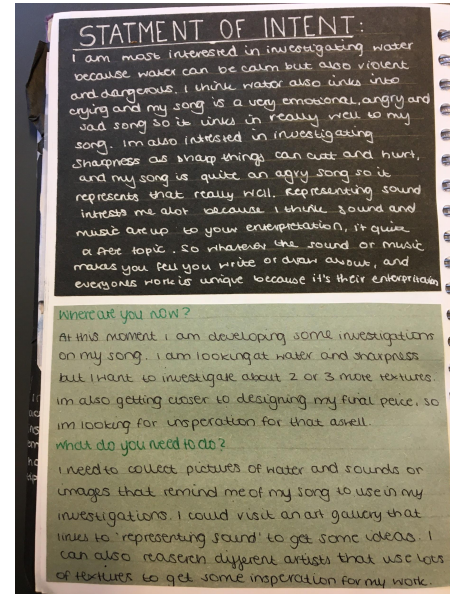 STATMENT OF INTENT:
I am most interested in investigating water
because water can be calm but also violent
and dangerous. I think water also links into
crying and my song is a very emotional, angry and
sad song so it links in really well to my
song. Im also intrested in investigating
sharpness as sharp things can cutt and hurt,
and my song is quite an agry song so it
represents that really well. Representing sound
intrests me alot because I think sound and
music are up to your enterpretation, it quite
a free topic. So whatever the sound or music
makes you feel you write or draw about, and
everyones work is unique because it's their enterpritation
Where are you now?
At this moment I am developing some investigations
on my song. I am looking at water and sharpness
but I want to investigate about 2 or 3 more textures.
Im also getting closer to designing my final peice, so
im looking for insperation for that aswell.
What do you need to do?
I need to collect pictures of water and sounds or
images that remind me of my song to use in my
investigations. I could visit an art gallery that
links to 'representing sound' to get some ideas. I
can also reaserch different artists that use lots
of textures to get some insperation for my work.